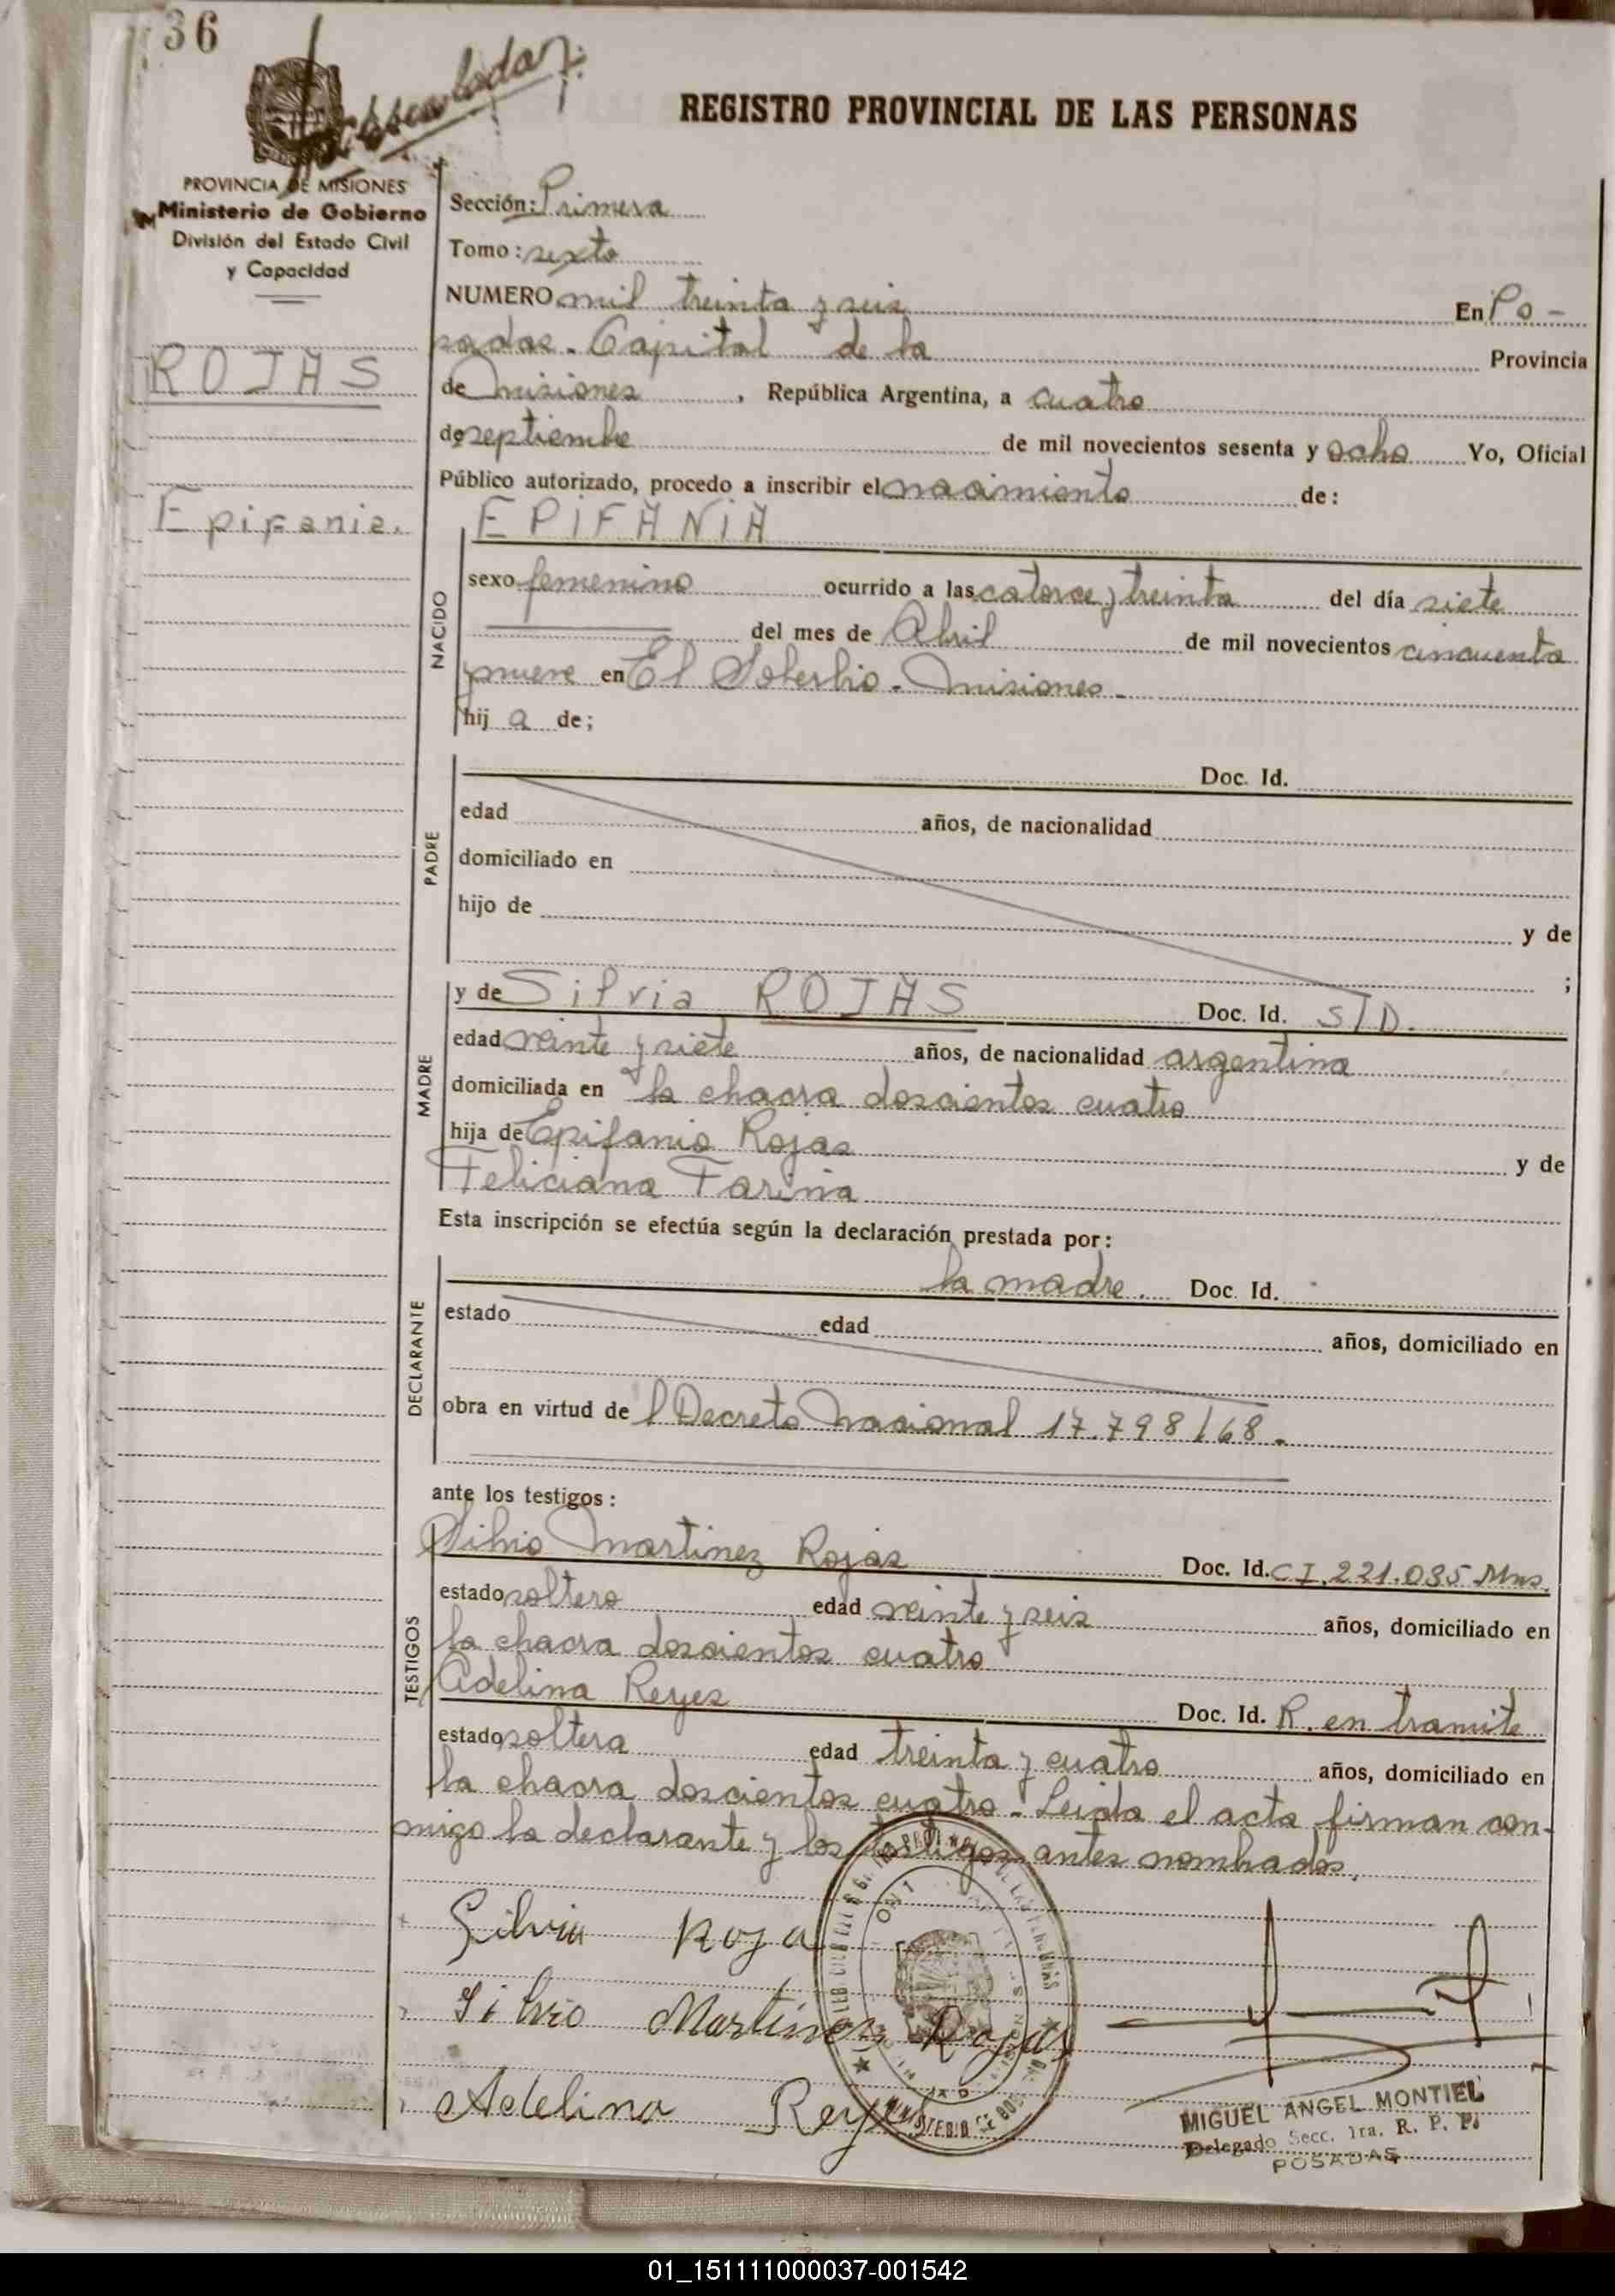 36
REGISTRO PROVINCIAL DE LAS PERSONAS
PROVINCIA DE MISIONES
Ministerio de Gobierno
División del Estado Civil
y Capacidad
ROJAS
Epifania.
Sección: Primera
Tomo: sexto
NUMERO mil treinta y seis En Po-
sadas. Capital de la Provincia
de Misiones, República Argentina, a cuatro
de septiembre de mil novecientos sesenta y ocho Yo, Oficial
Público autorizado, procedo a inscribir el nacimiento de:
NACIDO
EPIFANIA
sexo femenino ocurrido a las catorce y treinta del día siete
del mes de Abril de mil novecientos cincuenta
y nueve en El Soberbio. Misiones.
hij a de;
PADRE
Doc. Id.
edad años, de nacionalidad
domiciliado en
hijo de y de
;
MADRE
y de Silvia ROJAS Doc. Id. S/D.
edad veinte y siete años, de nacionalidad argentina
domiciliada en la chacra doscientos cuatro
hija de Epifanio Rojas y de
Feliciana Farina
Esta inscripción se efectúa según la declaración prestada por:
DECLARANTE
la madre. Doc. Id.
estado edad años, domiciliado en
obra en virtud de l Decreto Nacional 17.798/68.
ante los testigos:
TESTIGOS
Silvio Martinez Rojas Doc. Id. C I. 221.035 Mns.
estado soltero edad veinte y seis años, domiciliado en
la chacra doscientos cuatro
Adelina Reyes Doc. Id. R. en tramite
estado soltera edad treinta y cuatro años, domiciliado en
la chacra doscientos cuatro. Leida el acta firman con-
migo la declarante y los testigos antes nombrados.
Silvia Roja
Silvio Martinez Rojas
Adelina Reyes
MIGUEL ANGEL MONTIEL
Delegado Secc. 1ra. R. P. P.
POSADAS
01_151111000037-001542